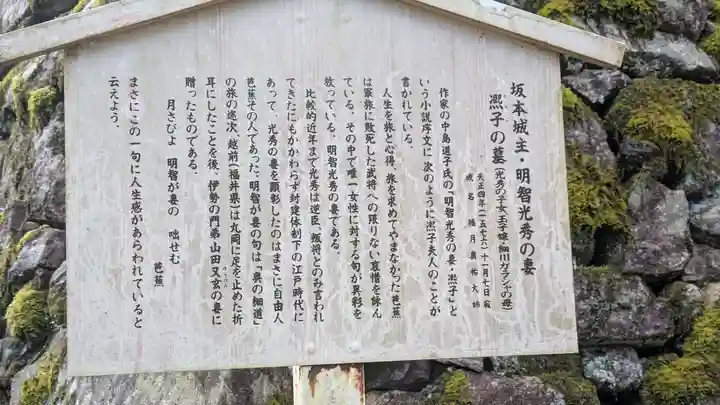 坂本城主・明智光秀の妻
凞子の墓(光秀の子女、玉子嬢・細川ガラシャの母)
天正四年(一五七六)十一月七日 歿
戒名 福月真祐大姉
作家の中島道子氏の「明智光秀の妻・凞子」と
いう小説序文に 次のように凞子夫人のことが
書かれている。
人生を旅と心得、旅を求めてやまなかった芭蕉
は軍旅に敗死した武将への限りない哀惜を詠ん
でいる。その中で唯一女性に対する句が異彩を
放っている。明智光秀の妻である。
比較的近年まで光秀は逆臣、叛将とのみ言われ
てきたにもかかわらず封建体制下の江戸時代に
あって、光秀の妻を顕彰したのはまさに自由人
芭蕉その人であった。明智が妻の句は「奥の細道」
の旅の途次、越前(福井県)は丸岡に足を止めた折
耳にしたことを後、伊勢の門弟山田又玄の妻に
贈ったものである。
月さびよ 明智が妻の 咄せむ
芭蕉
まさにこの一句に人生感があらわれていると
云えよう。